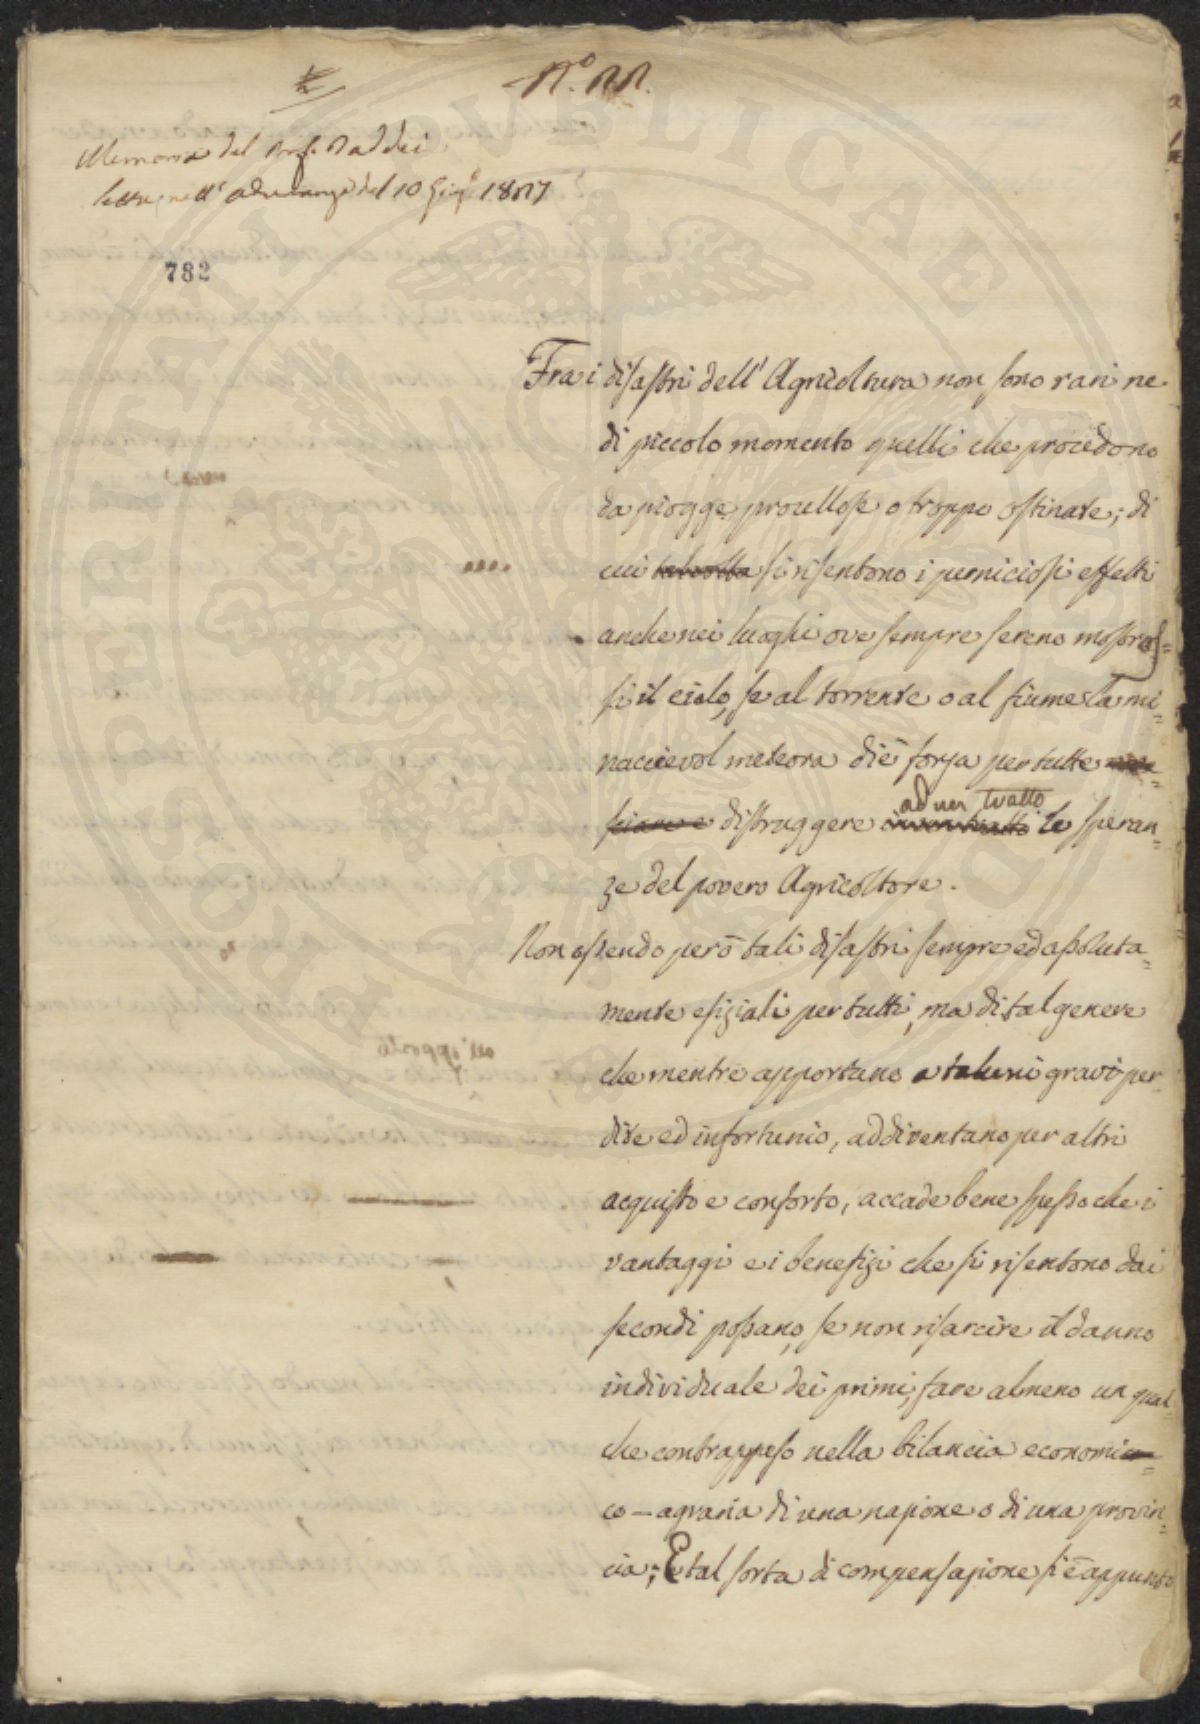 N.° 22.
Memoria del Prof. Taddei
letta nell' adunanza del 10 Giug.° 1827
782
Fra i disastri dell' Agricoltura non sono rari ne
di piccolo momento quelli che procedono
da piogge procellose o troppo ostinate; di
cui talvolta si risentono i perniciosi effetti
anche nei luoghi ove sempre sereno mostros=
si il cielo, se al torrente o al fiume la mi=
naccievol meteora diè forza per tutte
ad un tratto
distruggere in un tratto le speran=
ze del povero Agricoltore.
Non essendo però tali disastri sempre ed assoluta=
mente esiziali per tutti, ma di tal genere
che mentre apportano a taluni gravi per=
dite ed infortunio, addiventano per altri
acquisto e conforto, accade bene spesso che i
vantaggi e i benefizi che si risentono dai
secondi possano, se non risarcire il danno
individuale dei primi, fare almeno un qual=
che contrappeso nella bilancia economi=
co – agraria di una nazione o di una provin=
cia; E tal sorta di compensazione si è appunto